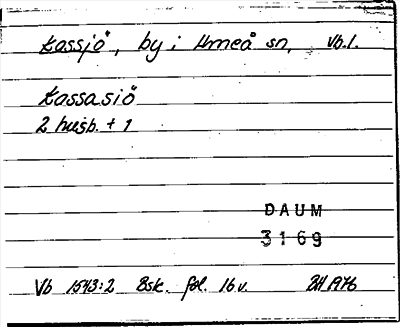 Kassjö, by i Umeå sn, Vb.l.
Kassasiö
2 husb. + 1
DAUM
3169
Vb 1543:2 Bsk. fol. 16v. BH 1976